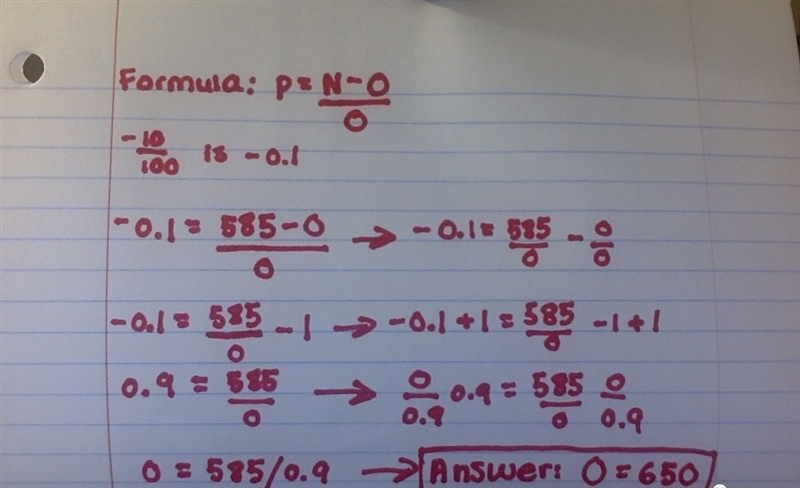 Formula: P = N-O/O
-10/100 is -0.1
-0.1 = 585-O/O → -0.1 = 585/O - O/O
-0.1 = 585/O - 1 → -0.1 + 1 = 585/O - 1 + 1
0.9 = 585/O → O/0.9 0.9 = 585/O O/0.9
O = 585/0.9 → Answer: O = 650